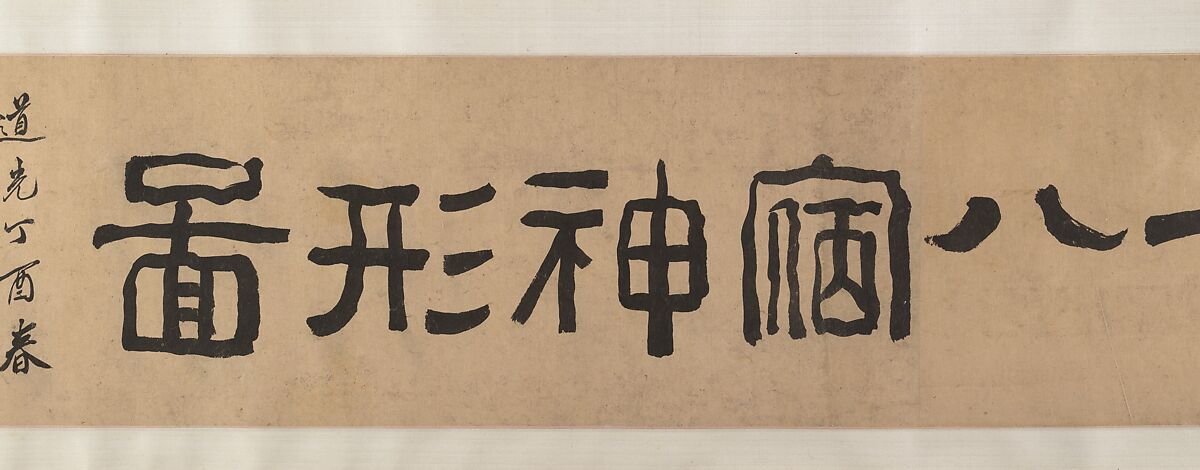 八宿神形圖
道光丁酉春